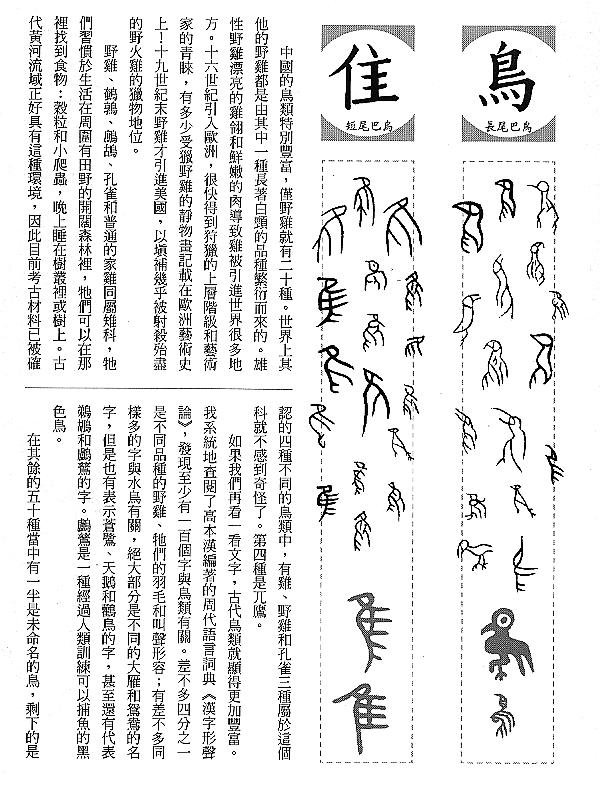 鳥
長尾巴鳥
隹
短尾巴鳥
中國的鳥類特別豐富，僅野雞就有二十種。世界上其
他的野雞都是由其中一種長著白頭的品種繁衍而來的。雄
性野雞漂亮的雞翎和鮮嫩的肉導致雞被引進世界很多地
方。十六世紀引入歐洲，很快得到狩獵的上層階級和藝術
家的青睞，有多少受獵野雞的靜物畫記載在歐洲藝術史
上！十九世紀末野雞才引進美國，以填補幾乎被射殺殆盡
的野火雞的獵物地位。
野雞、鵪鶉、鷓鴣、孔雀和普通的家雞同屬雉科，牠
們習慣於生活在周圍有田野的開闊森林裡，牠們可以在那
裡找到食物：穀粒和小爬蟲，晚上睡在樹叢裡或樹上。古
代黃河流域正好具有這種環境，因此目前考古材料已被確
認的四種不同的鳥類中，有雞、野雞和孔雀三種屬於這個
科就不感到奇怪了。第四種是兀鷹。
如果我們再看一看文字，古代鳥類就顯得更加豐富。
我系統地查閱了高本漢編著的周代語言詞典《漢字形聲
論》，發現至少有一百個字與鳥類有關。差不多四分之一
是不同品種的野雞、牠們的羽毛和叫聲形容；有差不多同
樣多的字與水鳥有關，絕大部分是不同的大雁和鴛鴦的名
字，但是也有表示蒼鷺、天鵝和鶴鳥的字，甚至還有代表
鵜鶘和鸕鶿的字。鸕鶿是一種經過人類訓練可以捕魚的黑
色鳥。
在其餘的五十種當中有一半是未命名的鳥，剩下的是